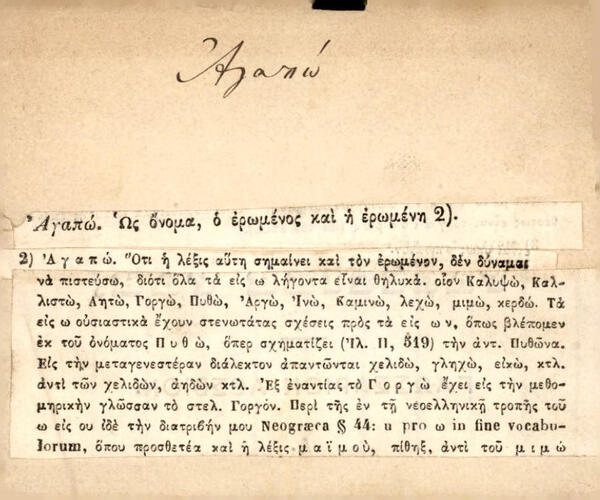 Ἀγαπώ
Ἀγαπώ. Ὡς ὄνομα, ὁ ἐρωμένος καὶ ἡ ἐρωμένη 2).
2) Ἀγαπώ. Ὅτι ἡ λέξις αὕτη σημαίνει καὶ τὸν ἐρωμένον, δὲν δύναμαι
νὰ πιστεύσω, διότι ὅλα τὰ εἰς ω λήγοντα εἶναι θηλυκά. οἷον Καλυψώ, Καλ-
λιστώ, Λητώ, Γοργώ, Πυθώ, Ἀργώ, Ἰνώ, Καμινώ, λεχώ, μιμώ, κερδώ. Τὰ
εἰς ω οὐσιαστικὰ ἔχουν στενωτάτας σχέσεις πρὸς τὰ εἰς ων, ὅπως βλέπομεν
ἐκ τοῦ ὀνόματος Πυθώ, ὅπερ σχηματίζει (Ἰλ. Π, 519) τὴν ἀντ. Πυθῶνα.
Εἰς τὴν μεταγενεστέραν διάλεκτον ἀπαντῶνται χελιδώ, γληχώ, εἰκώ, κτλ.
ἀντὶ τῶν χελιδών, ἀηδών κτλ. Ἐξ ἐναντίας τὸ Γοργώ ἔχει εἰς τὴν μεθο-
μηρικὴν γλῶσσαν τὸ στελ. Γοργόν. Περὶ τῆς ἐν τῇ νεοελληνικῇ τροπῆς τοῦ
ω εἰς ου ἰδὲ τὴν διατριβήν μου Neogræca § 44: u pro ω in fine vocabu-
lorum, ὅπου προσθετέα καὶ ἡ λέξις μαϊμού, πίθηξ, ἀντὶ τοῦ μιμώ